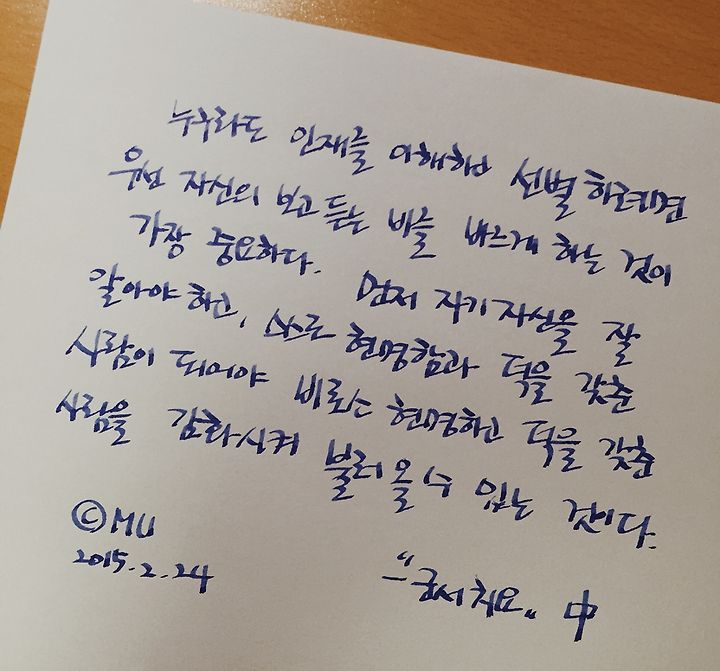 누구라도 인재를 이해하고 선별하려면
우선 자신의 보고 듣는 바를 바르게 하는 것이
가장 중요하다. 먼저 자기자신을 잘
알아야 하고, 스스로 현명함과 덕을 갖춘
사람이 되어야 비로소 현명하고 덕을 갖춘
사람을 감화시켜 불러올 수 있는 것이다.
©MU
2015.2.24
-"군서치요" 中